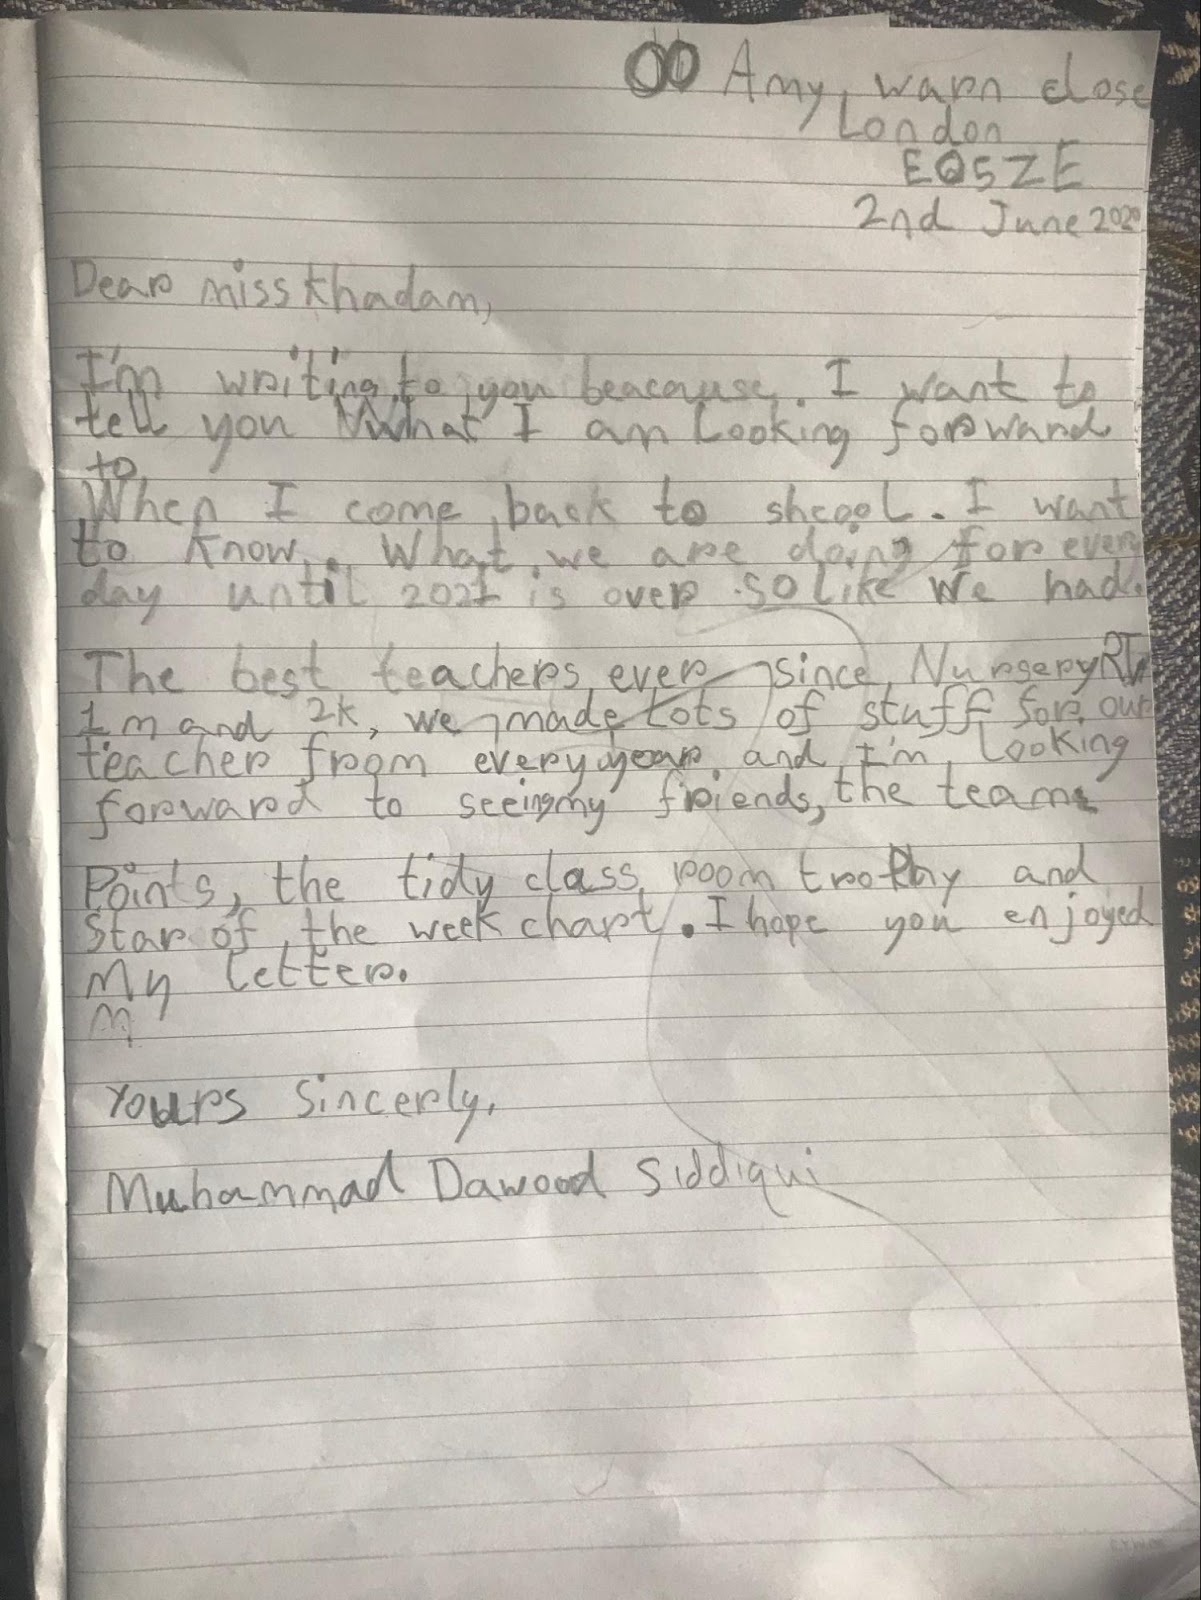 00 Amy, warn close
London
E05ZE
2nd June 2020
Dear miss Khadam,
I'm writing to you beacause. I want to
tell you What I am Looking forward
to
When I come back to shcool. I want
to know. What we are doing for every
day until 2021 is over so Like We had.
The best teachers ever since Nursery RT
1m and 2k, we made Lots of stuff for our
teacher from every year and I'm Looking
forward to seeing my friends, the team
Points, the tidy class room trophy and
Star of the week chart. I hope you enjoyed
My Letter.
M
Yours Sincerly,
Muhammad Dawood Siddiqui